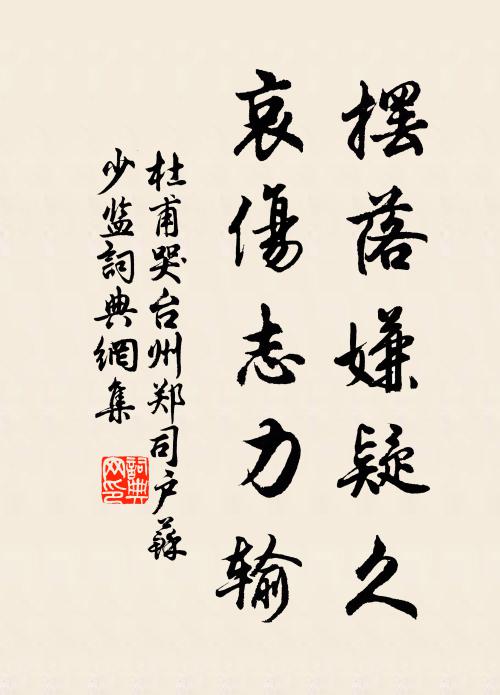 摆落嫌疑久
哀傷志力输
杜甫哭台州郑司户蘇
少监詞典網集
詞典
网印